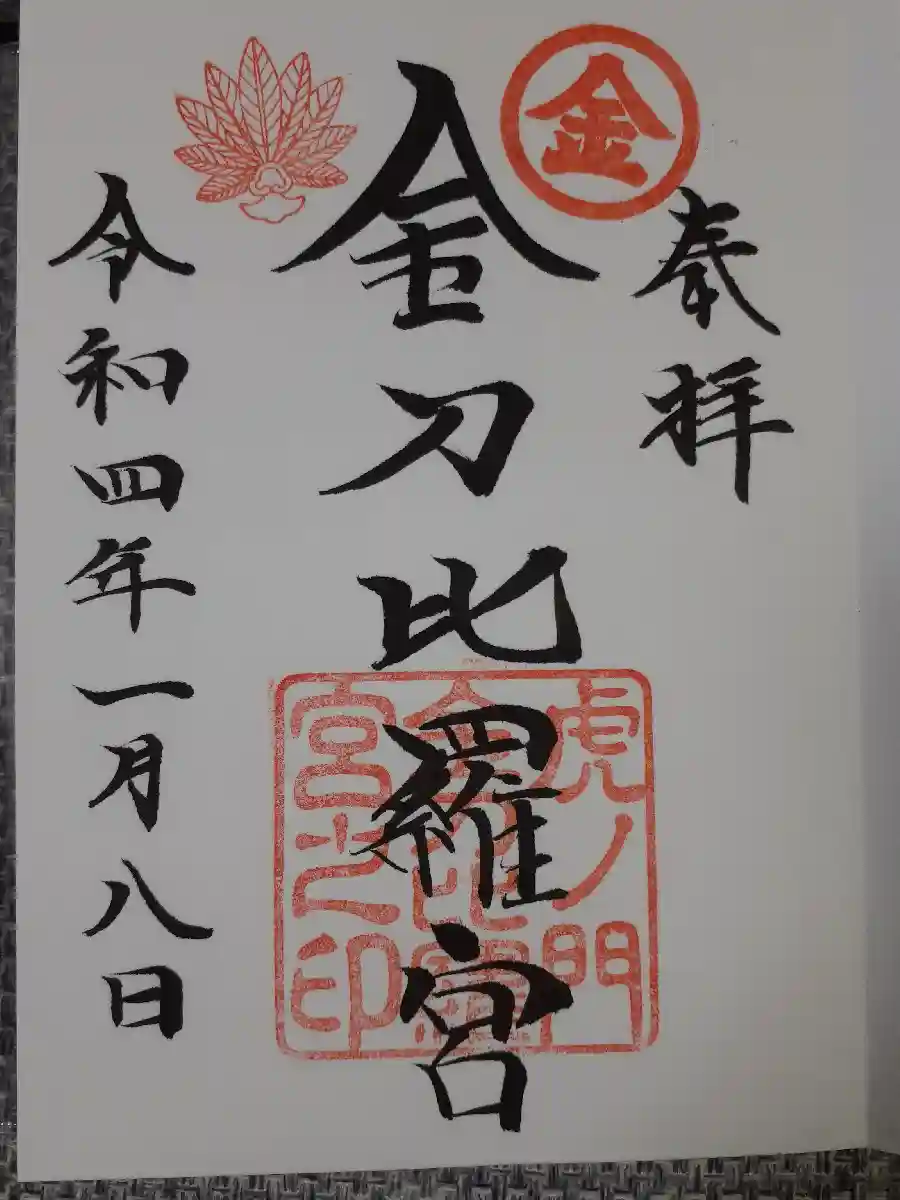 奉拝
金
金刀比羅宮
虎ノ門
金刀比羅
宮之印
令和四年一月八日